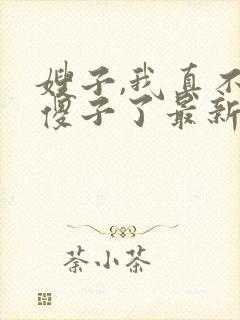 嫂子,我真不
傻子了最新
荼小茶